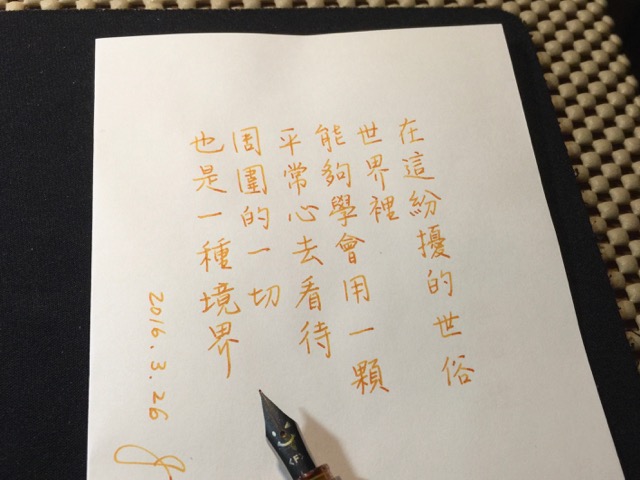 在這紛擾的世俗
世界裡
能夠學會用一顆
平常心去看待
周圍的一切
也是一種境界
2016.3.26
<F>